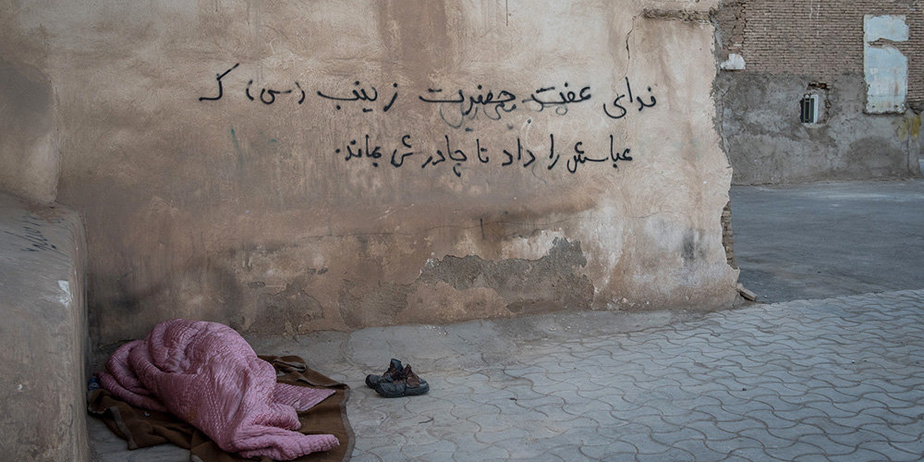 فدای عفت حضرت زینب (س) که
عباسش را داد تا چادرش بماند.